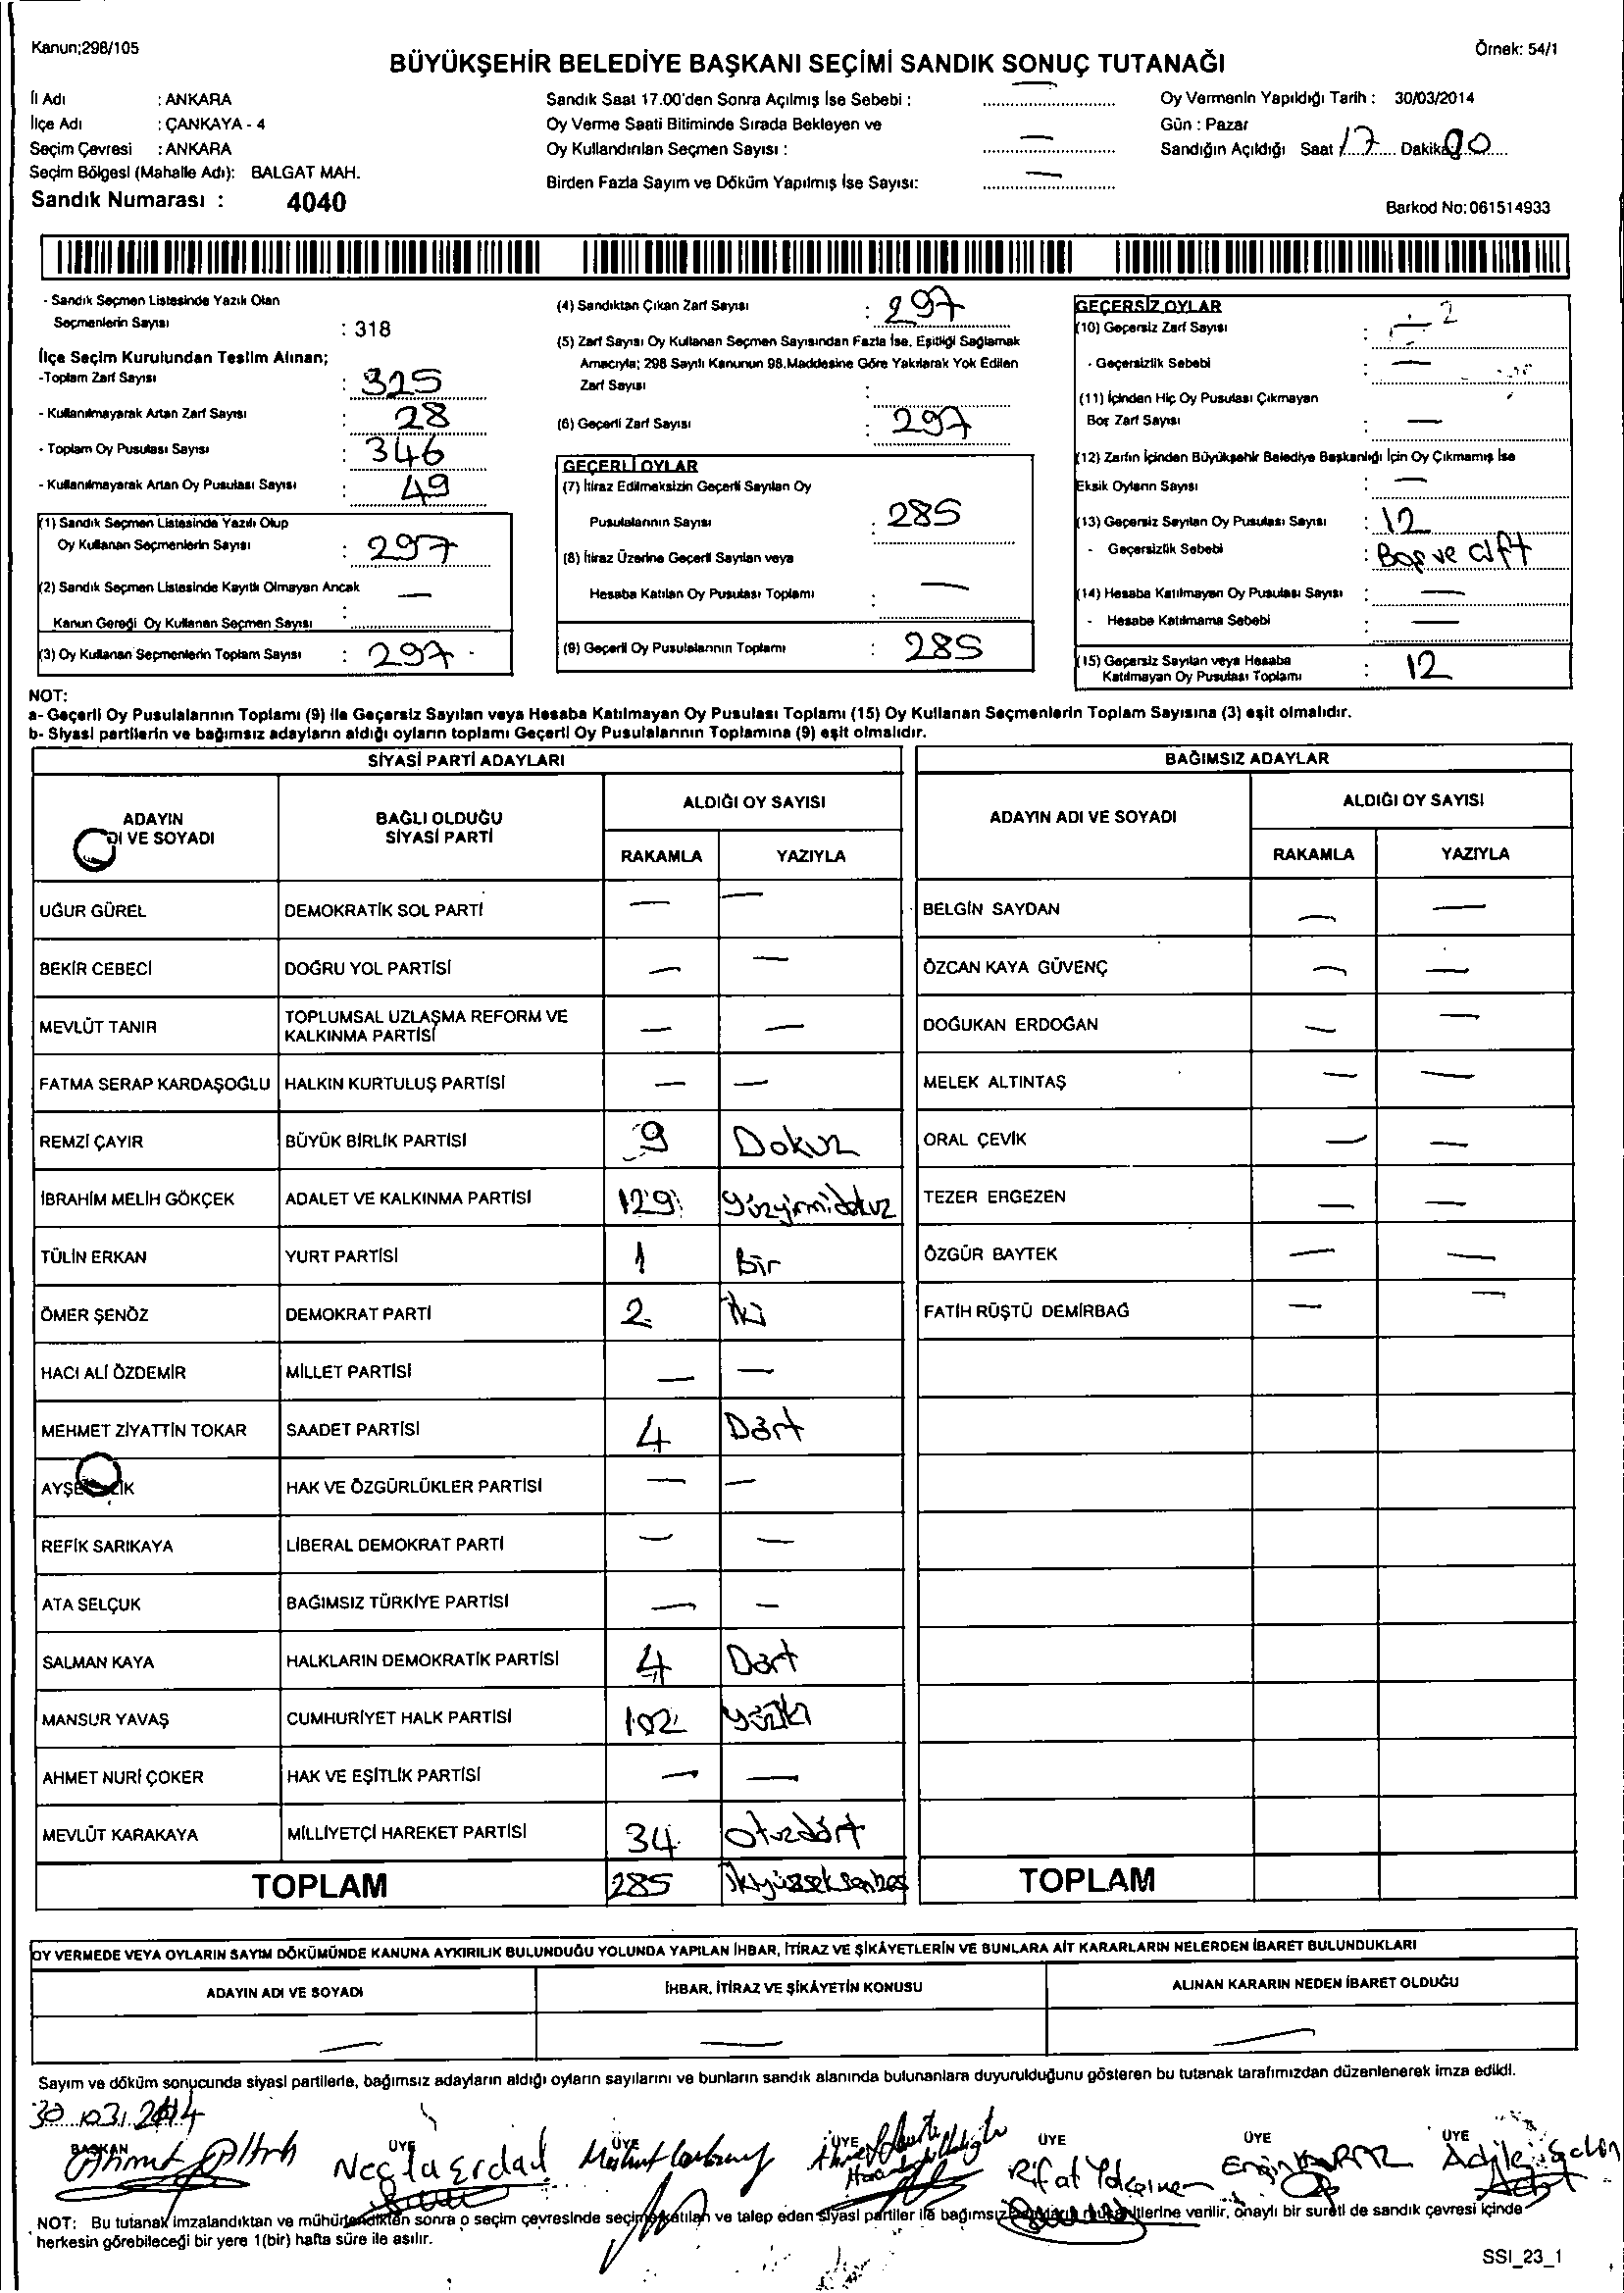 Kanun;298/105
Örnek: 54/1
BÜYÜKŞEHİR BELEDİYE BAŞKANI SEÇİMİ SANDIK SONUÇ TUTANAĞI
İl Adı : ANKARA
İlçe Adı : ÇANKAYA - 4
Seçim Çevresi : ANKARA
Seçim Bölgesi (Mahalle Adı): BALGAT MAH.
Sandık Numarası : 4040
Sandık Saat 17.00'den Sonra Açılmış İse Sebebi : —
Oy Verme Saati Bitiminde Sırada Bekleyen ve
Oy Kullandırılan Seçmen Sayısı : —
Birden Fazla Sayım ve Döküm Yapılmış İse Sayısı: —
Oy Vermenin Yapıldığı Tarih : 30/03/2014
Gün : Pazar
Sandığın Açıldığı Saat 17 Dakika 00
Barkod No: 061514933
- Sandık Seçmen Listesinde Yazılı Olan
Seçmenlerin Sayısı : 318
İlçe Seçim Kurulundan Teslim Alınan;
-Toplam Zarf Sayısı : 325
- Kullanılmayarak Artan Zarf Sayısı : 28
- Toplam Oy Pusulası Sayısı : 346
- Kullanılmayarak Artan Oy Pusulası Sayısı : 49
(1) Sandık Seçmen Listesinde Yazılı Olup
Oy Kullanan Seçmenlerin Sayısı : 297
(2) Sandık Seçmen Listesinde Kayıtlı Olmayan Ancak
Kanun Gereği Oy Kullanan Seçmen Sayısı : —
(3) Oy Kullanan Seçmenlerin Toplam Sayısı : 297
(4) Sandıktan Çıkan Zarf Sayısı : 297
(5) Zarf Sayısı Oy Kullanan Seçmen Sayısından Fazla İse, Eşitliği Sağlamak
Amacıyla; 298 Sayılı Kanunun 98.Maddesine Göre Yakılarak Yok Edilen
Zarf Sayısı :
(6) Geçerli Zarf Sayısı : 297
GEÇERLİ OYLAR
(7) İtiraz Edilmeksizin Geçerli Sayılan Oy
Pusulalarının Sayısı : 285
(8) İtiraz Üzerine Geçerli Sayılan veya
Hesaba Katılan Oy Pusulası Toplamı : —
(9) Geçerli Oy Pusulalarının Toplamı : 285
GEÇERSİZ OYLAR
(10) Geçersiz Zarf Sayısı : —
- Geçersizlik Sebebi : —
(11) İçinden Hiç Oy Pusulası Çıkmayan
Boş Zarf Sayısı : —
(12) Zarfın İçinden Büyükşehir Belediye Başkanlığı İçin Oy Çıkmamış İse
Eksik Oyların Sayısı : —
(13) Geçersiz Sayılan Oy Pusulası Sayısı : 12
- Geçersizlik Sebebi : Boş ve Çift
(14) Hesaba Katılmayan Oy Pusulası Sayısı : —
- Hesaba Katılmama Sebebi : —
(15) Geçersiz Sayılan veya Hesaba
Katılmayan Oy Pusulası Toplamı : 12
NOT:
a- Geçerli Oy Pusulalarının Toplamı (9) ile Geçersiz Sayılan veya Hesaba Katılmayan Oy Pusulası Toplamı (15) Oy Kullanan Seçmenlerin Toplam Sayısına (3) eşit olmalıdır.
b- Siyasi partilerin ve bağımsız adayların aldığı oyların toplamı Geçerli Oy Pusulalarının Toplamına (9) eşit olmalıdır.
SİYASİ PARTİ ADAYLARI
ADAYIN
DI VE SOYADI
BAĞLI OLDUĞU
SİYASİ PARTİ
ALDIĞI OY SAYISI
RAKAMLA YAZIYLA
UĞUR GÜREL DEMOKRATİK SOL PARTİ — —
BEKİR CEBECİ DOĞRU YOL PARTİSİ — —
MEVLÜT TANIR TOPLUMSAL UZLAŞMA REFORM VE
KALKINMA PARTİSİ — —
FATMA SERAP KARDAŞOĞLU HALKIN KURTULUŞ PARTİSİ — —
REMZİ ÇAYIR BÜYÜK BİRLİK PARTİSİ 9 Dokuz
İBRAHİM MELİH GÖKÇEK ADALET VE KALKINMA PARTİSİ 129 yüzyirmidokuz
TÜLİN ERKAN YURT PARTİSİ 1 Bir
ÖMER ŞENÖZ DEMOKRAT PARTİ 2 iki
HACI ALİ ÖZDEMİR MİLLET PARTİSİ — —
MEHMET ZİYATTİN TOKAR SAADET PARTİSİ 4 Dört
HAK VE ÖZGÜRLÜKLER PARTİSİ — —
REFİK SARIKAYA LİBERAL DEMOKRAT PARTİ — —
ATA SELÇUK BAĞIMSIZ TÜRKİYE PARTİSİ — —
SALMAN KAYA HALKLARIN DEMOKRATİK PARTİSİ 4 Dört
MANSUR YAVAŞ CUMHURİYET HALK PARTİSİ 102 yüziki
AHMET NURİ ÇOKER HAK VE EŞİTLİK PARTİSİ — —
MEVLÜT KARAKAYA MİLLİYETÇİ HAREKET PARTİSİ 34 otuzdört
TOPLAM 285 ikiyüzseksenbeş
BAĞIMSIZ ADAYLAR
ADAYIN ADI VE SOYADI
ALDIĞI OY SAYISI
RAKAMLA YAZIYLA
BELGİN SAYDAN — —
ÖZCAN KAYA GÜVENÇ — —
DOĞUKAN ERDOĞAN — —
MELEK ALTINTAŞ — —
ORAL ÇEVİK — —
TEZER ERGEZEN — —
ÖZGÜR BAYTEK — —
FATİH RÜŞTÜ DEMİRBAĞ — —
TOPLAM
OY VERMEDE VEYA OYLARIN SAYIM DÖKÜMÜNDE KANUNA AYKIRILIK BULUNDUĞU YOLUNDA YAPILAN İHBAR, İTİRAZ VE ŞİKÂYETLERİN VE BUNLARA AİT KARARLARIN NELERDEN İBARET BULUNDUKLARI
ADAYIN ADI VE SOYADI İHBAR, İTİRAZ VE ŞİKÂYETİN KONUSU ALINAN KARARIN NEDEN İBARET OLDUĞU
— — —
Sayım ve döküm sonucunda siyasi partilerle, bağımsız adayların aldığı oyların sayılarını ve bunların sandık alanında bulunanlara duyurulduğunu gösteren bu tutanak tarafımızdan düzenlenerek imza edildi.
30.03.2014
BAŞKAN ÜYE ÜYE ÜYE ÜYE ÜYE ÜYE
Necla Erdal Rifat Engin Adile
NOT: Bu tutanak imzalandıktan ve mühürlendikten sonra o seçim çevresinde seçime katılan ve talep eden siyasi partiler ile bağımsız verilir, onaylı bir sureti de sandık çevresi içinde
herkesin görebileceği bir yere 1(bir) hafta süre ile asılır.
SSI_23_1